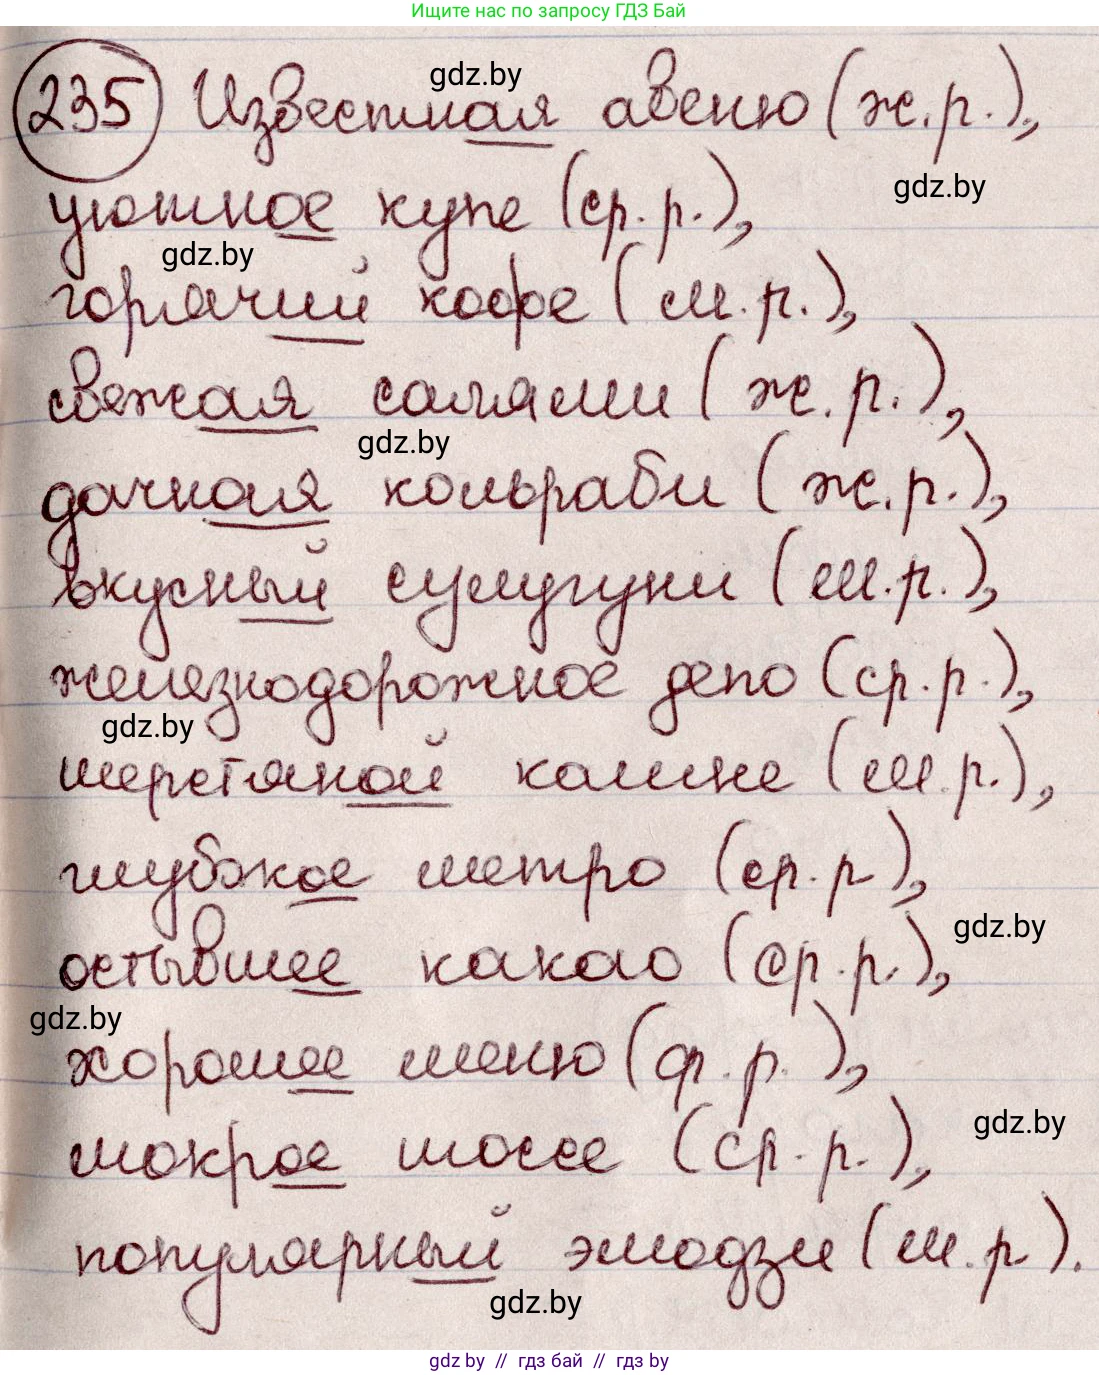 Ищите нас по запросу ГДЗ Бай
235 Известная авеню (ж.р.),
gdz.by
уютное купе (ср.р.),
gdz.by
gdz.by
горячий кофе (м.р.),
свежая салями (ж.р.),
gdz.by
дачная кольраби (ж.р.),
вкусный сулугуни (м.р.),
железнодорожное депо (ср.р.),
gdz.by
шерстяной кашне (м.р.),
глубокое метро (ср.р),
остывшее какао (ср.р.),
gdz.by
gdz.by
хорошее меню (ср.р.),
мокрое шоссе (ср.р.),
gdz.by
популярный эмодзи (м.р).
gdz.by
gdz.by // гдз бай // гдз by